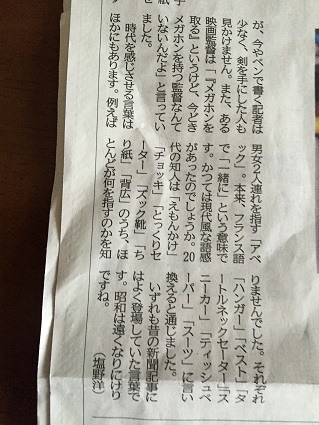 が、今やペンで書く記者は
少なく、剣を手にした人も
見かけません。また、ある
映画監督は「『メガホンを
取る』というけど、今どき
メガホンを持つ監督なんて
いないんだよ」と言ってい
ました。
時代を感じさせる言葉は
ほかにもあります。例えば
男女2人連れを指す「アベ
ック」。本来、フランス語
で「一緒に」という意味で
す。かつては現代風な語感
があったのでしょうか。20
代の知人は「えもんかけ」
「チョッキ」「とっくりセ
ーター」「ズック靴」「ち
り紙」「背広」のうち、ほ
とんどが何を指すのかを知
りませんでした。それぞれ
「ハンガー」「ベスト」「タ
ートルネックセーター」「ス
ニーカー」「ティッシュペ
ーパー」「スーツ」に言い
換えると通じました。
いずれも昔の新聞記事に
はよく登場していた言葉で
す。昭和は遠くなりにけり
ですね。
（塩野洋）